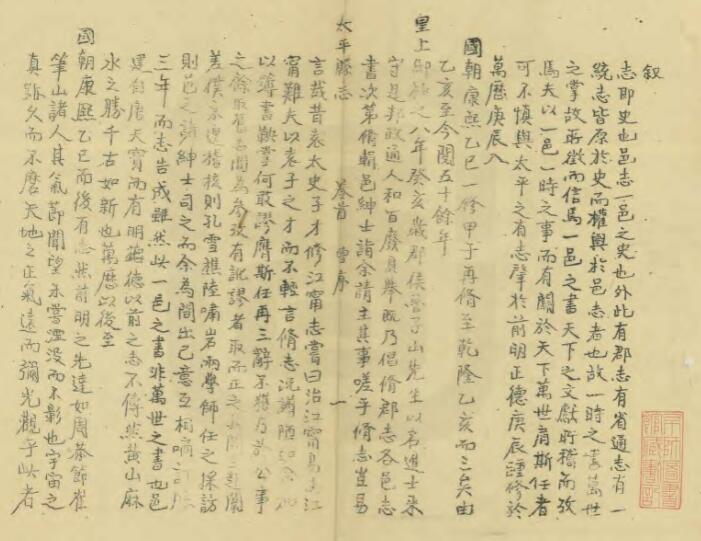 叙
志即史也邑志一邑之史也外此有郡志有省通志有一
統志皆原於史而權輿於邑志者也故一時之書萬世
之掌故所徵而信焉一邑之書天下之文獻所稽而攷
焉夫以一邑一時之事而有關於天下萬世膺斯任者
可不慎與太平之有志肇於前明正德庚辰踵修於
萬曆庚辰入
國朝康熙乙巳一修甲子再脩至乾隆乙亥而三矣由
乙亥至今閱五十餘年
皇上御極之八年癸亥歲郡侯魯子山先生以名進士來
守是邦政通人和百廢具舉既乃倡脩郡志各邑志
書次第脩輯邑紳士謁余請主其事嗟乎脩志豈易
太平縣志 卷首 曹序 一
言哉昔袁太史子才修江甯志嘗曰治江甯易志江
甯難夫以袁子之才而不輕言脩志況譾陋如余
以簿書鞅掌何敢謬膺斯任再三辭不獲乃於公事
之餘取舊志閱為參攷有訛謬者取而正之
差僕不遑稽核則孔雪樵陸嘯岩兩學師任之採訪
則邑之諸紳士司之而余為間出己意互相
三年而志告成雖然以一邑之書非萬世之書也邑
建自唐天寶而有明正德以前之志不傳然黃山麻
水之勝千古如新也萬曆以後至
國朝康熙乙巳而後有志然前明之先達如周恭節崔
筆山諸人其氣節聞望未嘗湮没而不彰也宇宙之
真跡久而不磨天地之正氣遠而彌光觀乎此者